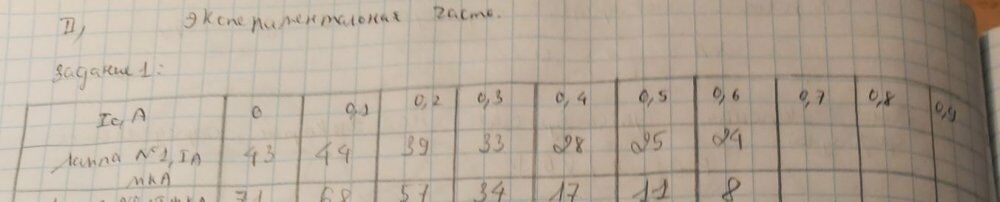 II, экспериментальная часть.
Задание 1:
Ic, A 0 0,1 0,2 0,3 0,4 0,5 0,6 0,7 0,8 0,9
Лампа №1, IA 43 44 39 33 28 25 24
мкА
71 68 51 34 17 11 8